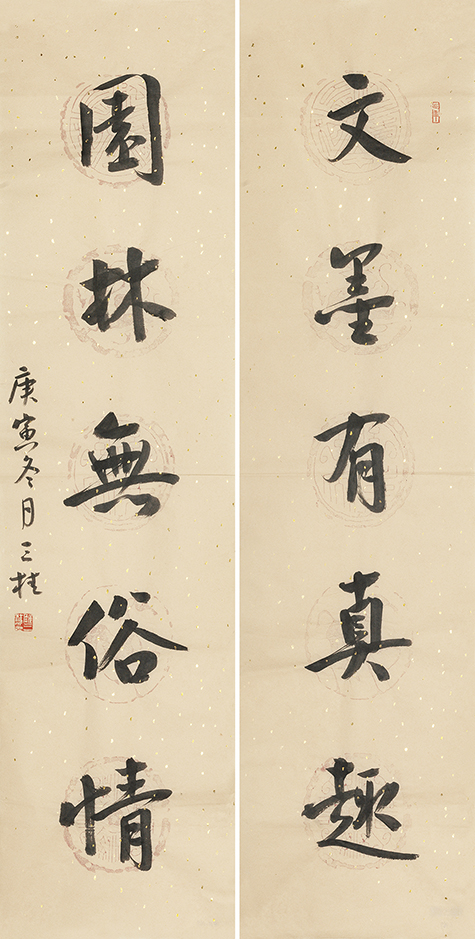 文墨有真趣
園林無俗情
庚寅冬月三桂